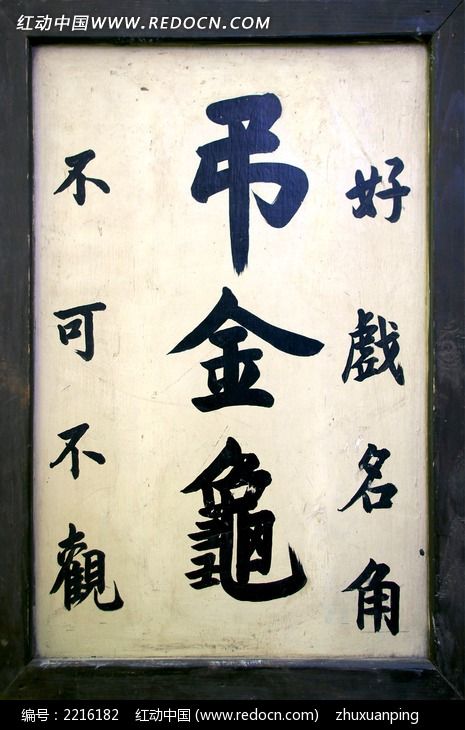 红动中国 WWW.REDOCN.COM
好戲名角
弔金龜
不可不觀
编号：2216182 红动中国 (www.redocn.com) zhuxuanping